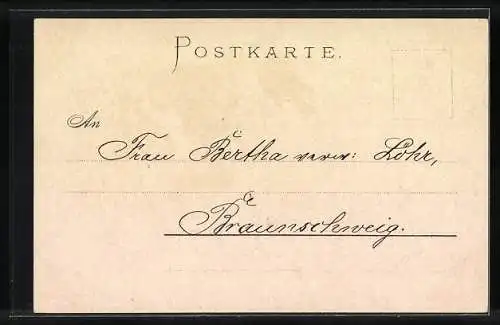 POSTKARTE.
An
Frau Bertha verw: Lohr,
Braunschweig.